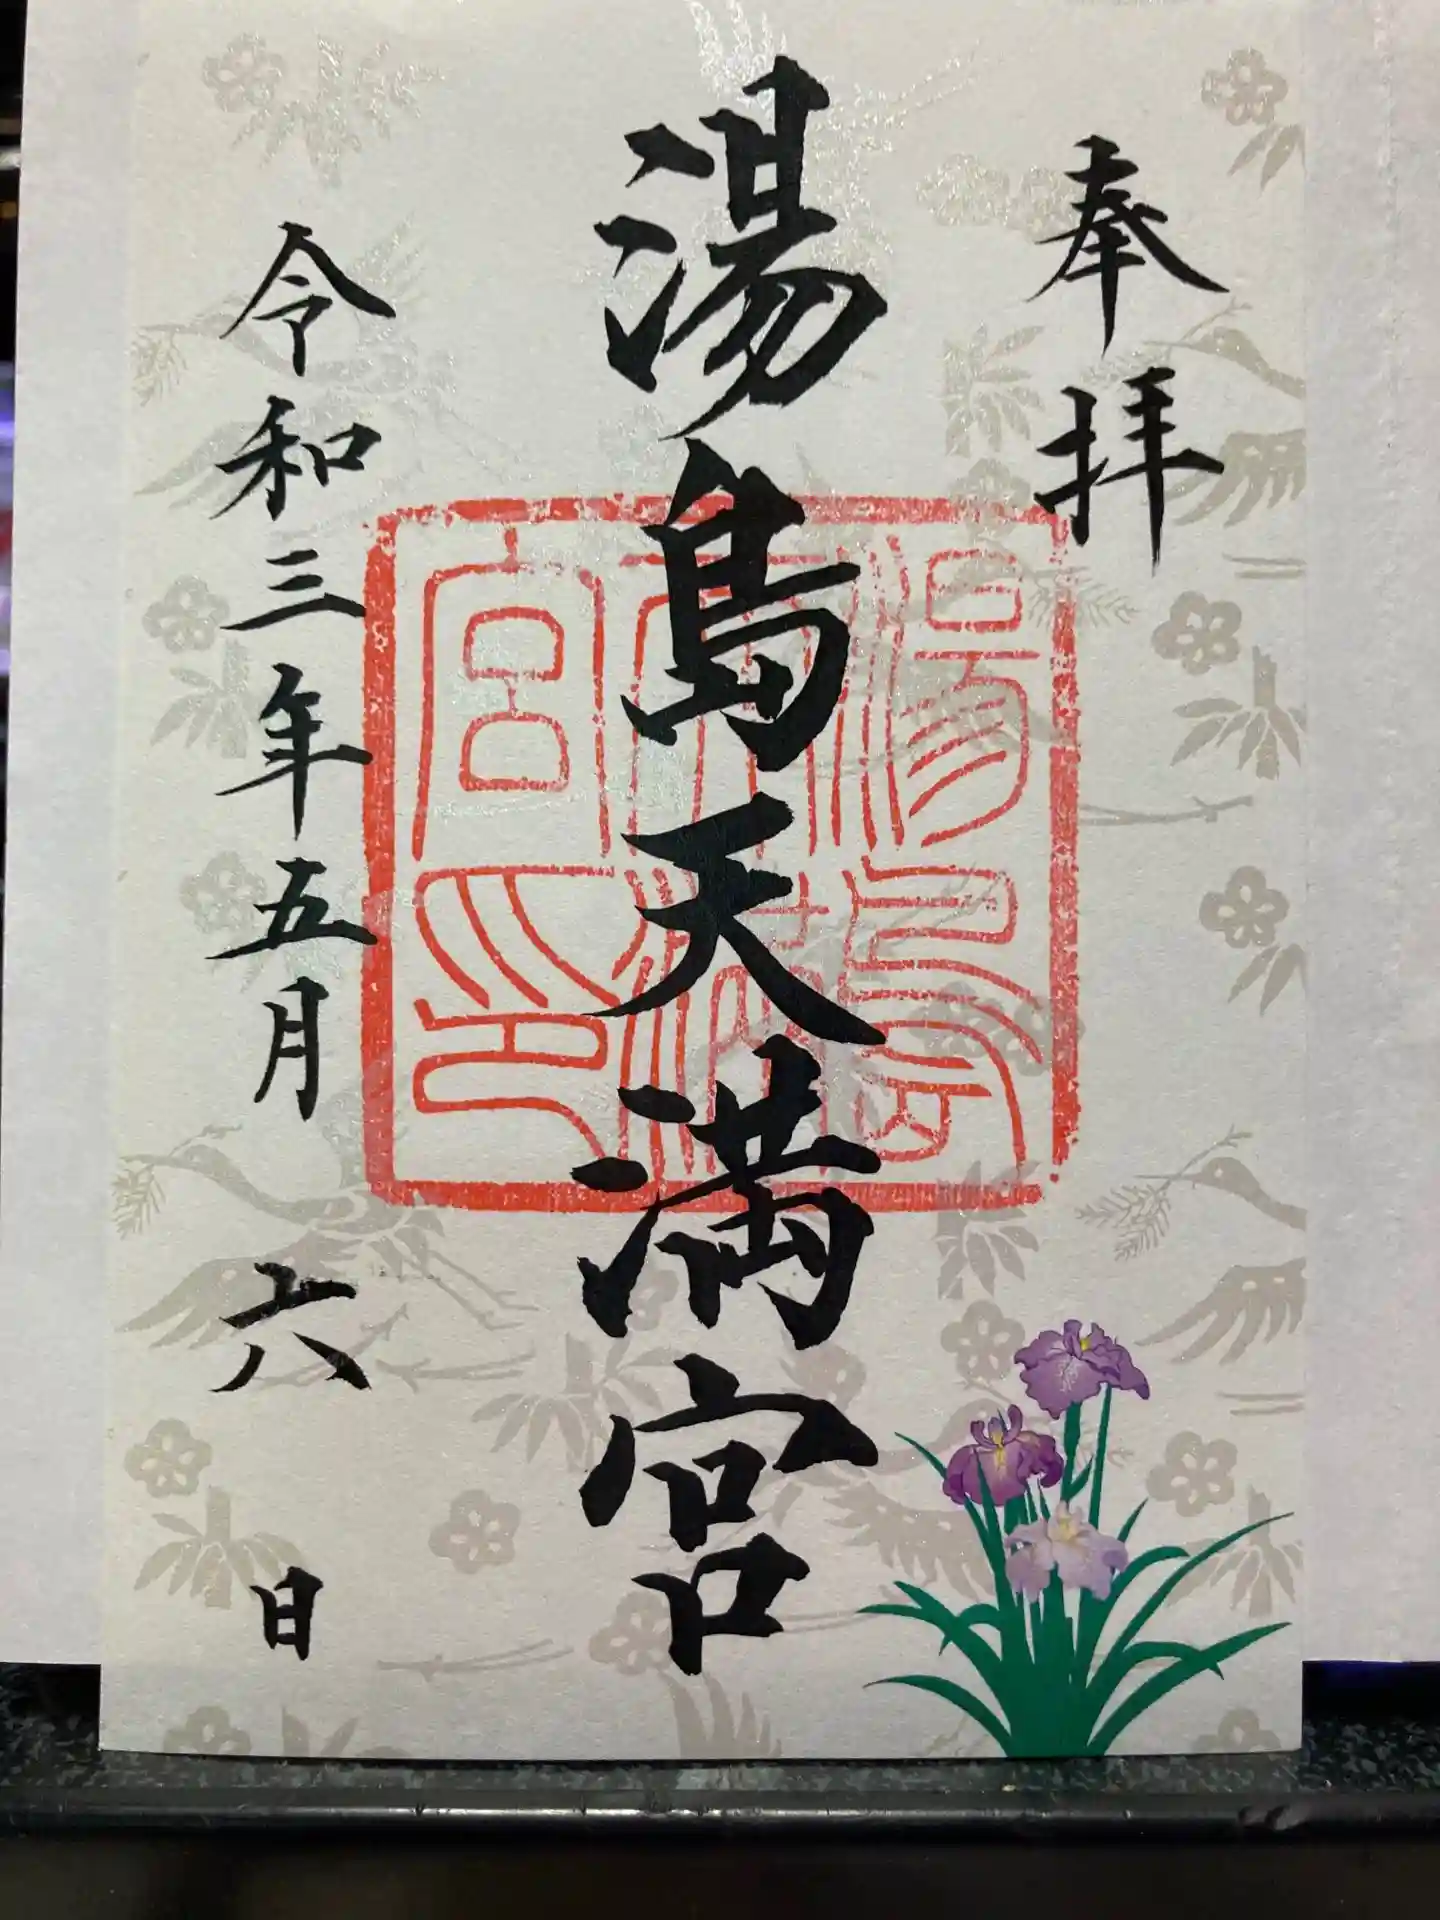 奉拝
湯島天満宮
湯島天満宮印
令和三年五月六日